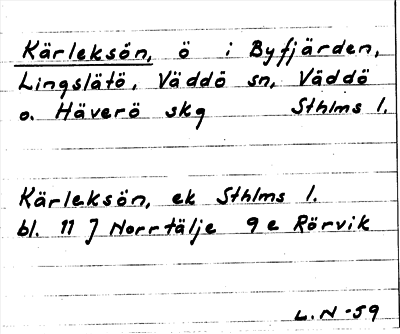 Kärleksön, ö i Byfjärden,
Lingslätö, Väddö sn, Väddö
o. Häverö skg Sthlms l.
Kärleksön, ek Sthlms l.
bl. 11 J Norrtälje 9 e Rörvik
L.N -59